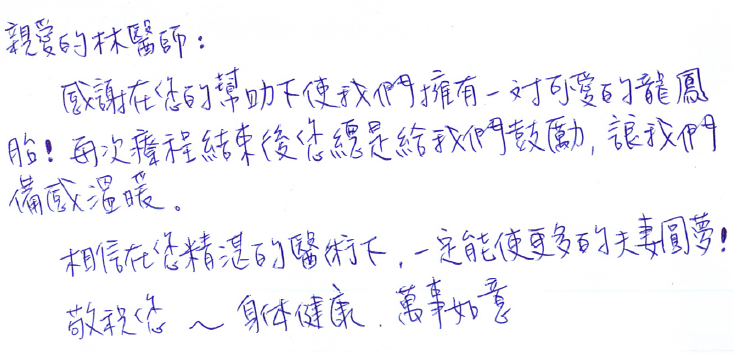 親愛的林醫師：
感謝在您的幫助下使我們擁有一对可愛的龍鳳
胎！每次療程結束後您總是給我們鼓勵，讓我們
備感溫暖。
相信在您精湛的醫術下，一定能使更多的夫妻圓夢！
敬祝您～身体健康．萬事如意